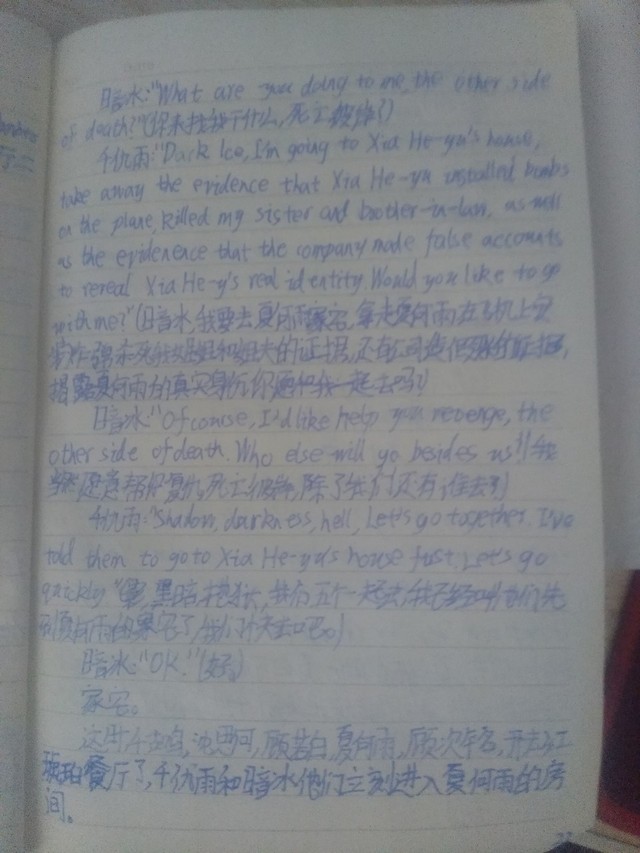 暗冰:"What are you doing to me, the other side
of death?"(你来找我干什么,死亡彼岸?)
千仇雨:"Dark Ice, I'm going to Xia He-yu's house,
take away the evidence that Xia He-yu installed bombs
on the plane, killed my sister and brother-in-law, as well
as the evidenence that the company made false accounts
to reveal Xia He-y's real identity. Would you like to go
with me?"(暗冰,我要去夏何雨家宅,拿走夏何雨在飞机上安
装炸弹杀死我姐姐和姐夫的证据,还有公司做假账的证据,
揭露夏何雨的真实身份,你愿和我一起去吗?)
暗冰:"Of course, I'd like help you revenge, the
other side of death. Who else will go besides us?"(我
当然愿意帮你复仇,死亡彼岸,除了我们还有谁去?)
千仇雨:"Shadow, darkness, hell, Let's go together. I've
told them to go to Xia He-yu's house fast. Let's go
quickly"(影,黑暗,地狱,我们五个一起去,我已经叫他们先
到夏何雨的家宅了,我们快去吧。)
暗冰:"OK."(好。)
家宅。
这时千,夏何雨,顾次年,开去江
琥珀餐厅了,千仇雨和暗冰他们立刻进入夏何雨的房
间。